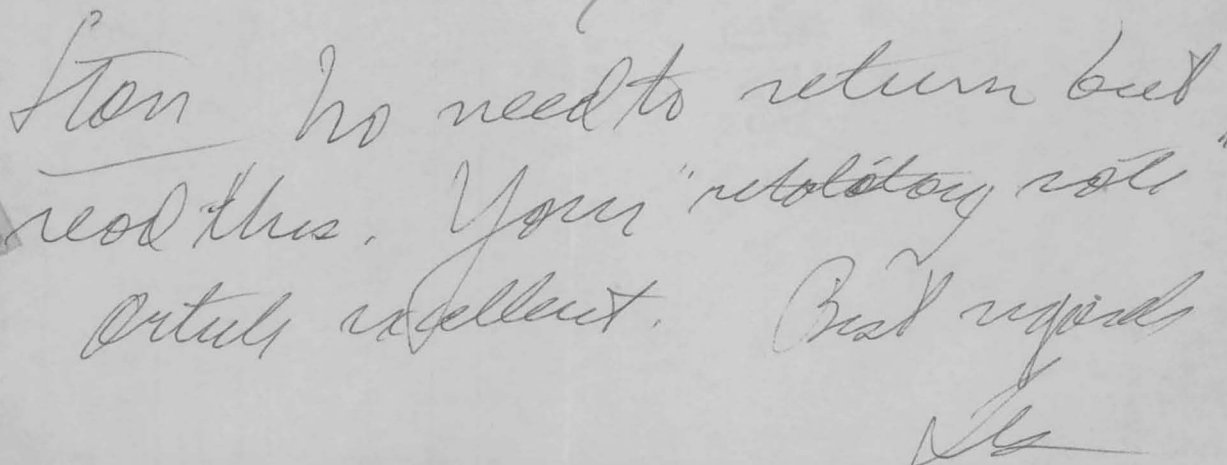 Stan no need to return but
read this. Your "retaliatory vote"
article excellent. Best regards
Les